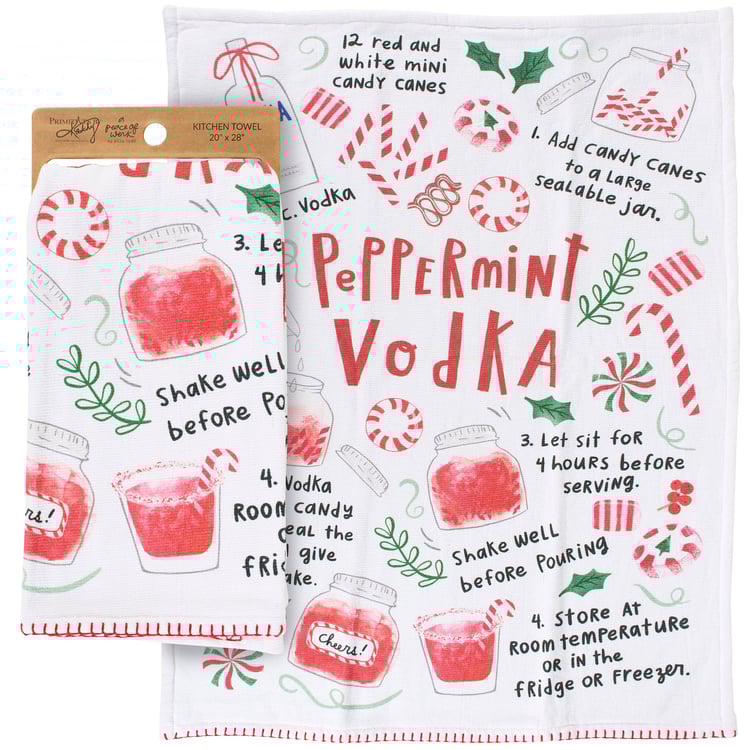 PRIMITIVES
Kathy
a
peace of
work
KITCHEN TOWEL
20" x 28"
3. Le
4 h
Shake well
before Po
4.
ROOM
fridg
eers!
12 red and
white mini
candy canes
KA
c. Vodka
1. Add candy canes
to a large
sealable jar.
Peppermint
Vodka
3. Let sit for
4 hours before
serving.
Vodka
candy
eal the
give
ake.
Shake well
before pouring
Cheers!
4. Store at
room temperature
or in the
fridge or freezer.